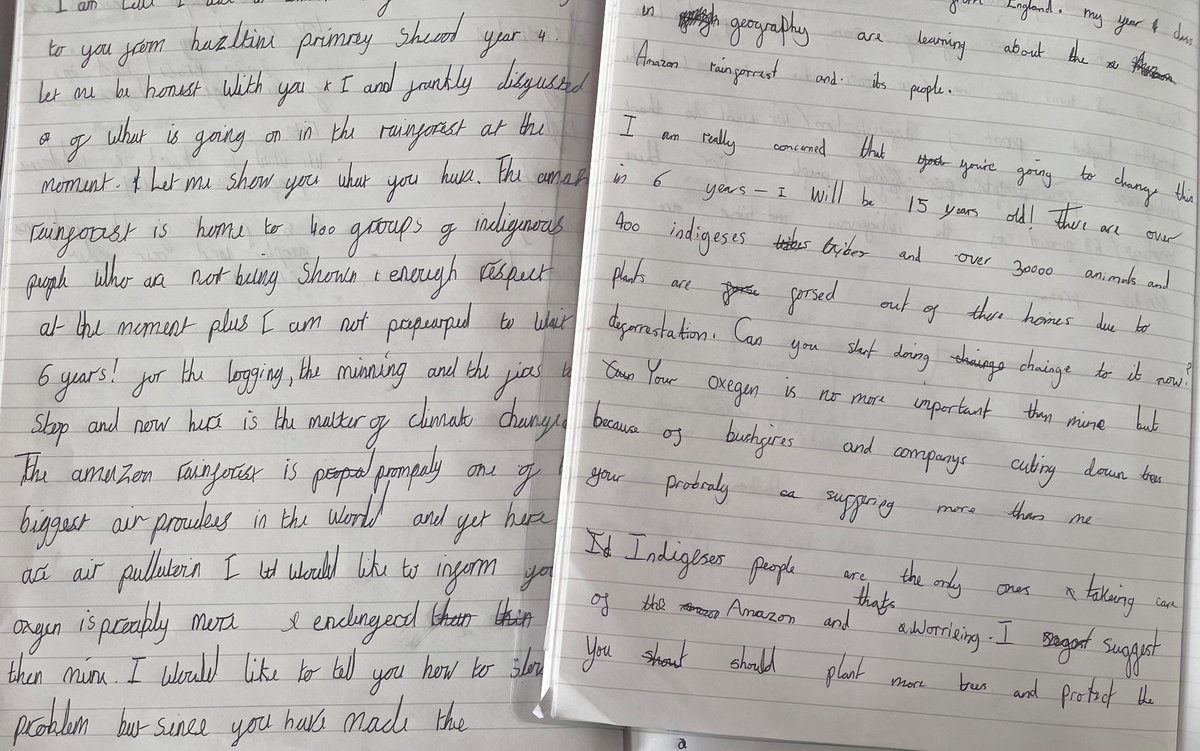 to you from hazltine primrey Shcool year 4.
let me be honest with you I and frankly disgusted
of what is going on in the rainforest at the
moment. Let me show you what you have. The
rainforest is home to 400 groups of indigenous
people who are not being shown enough respect
at the moment plus I am not prepearped to wait
6 years! for the logging, the minning and the fires
stop and now here is the matter of climate
The amazon rainforest is prompaly one of
biggest air proudees in the world and yet here
are air pullutern I would like to inform
oxgen is proably more endingerd
then mine. I would like to tell you how to
problem but since you have made the
England. my year 4 class
in geography are learning about the
Amazon rainforrest and its people.
I am really concerned that you're going to change this
in 6 years - I will be 15 years old! There are over
400 indigeses tribes and over 30000 animals and
plants are forsed out of there homes due to
deforrestation. Can you start doing chainge to it now?
Your oxegen is no more important than mine but
because of bushfires and companys cuting down trees
your probraly suffering more than me
Indigeses people are the only ones takeing care
of the Amazon and thats a worrieing. I suggest
You should plant more trees and protect the
a